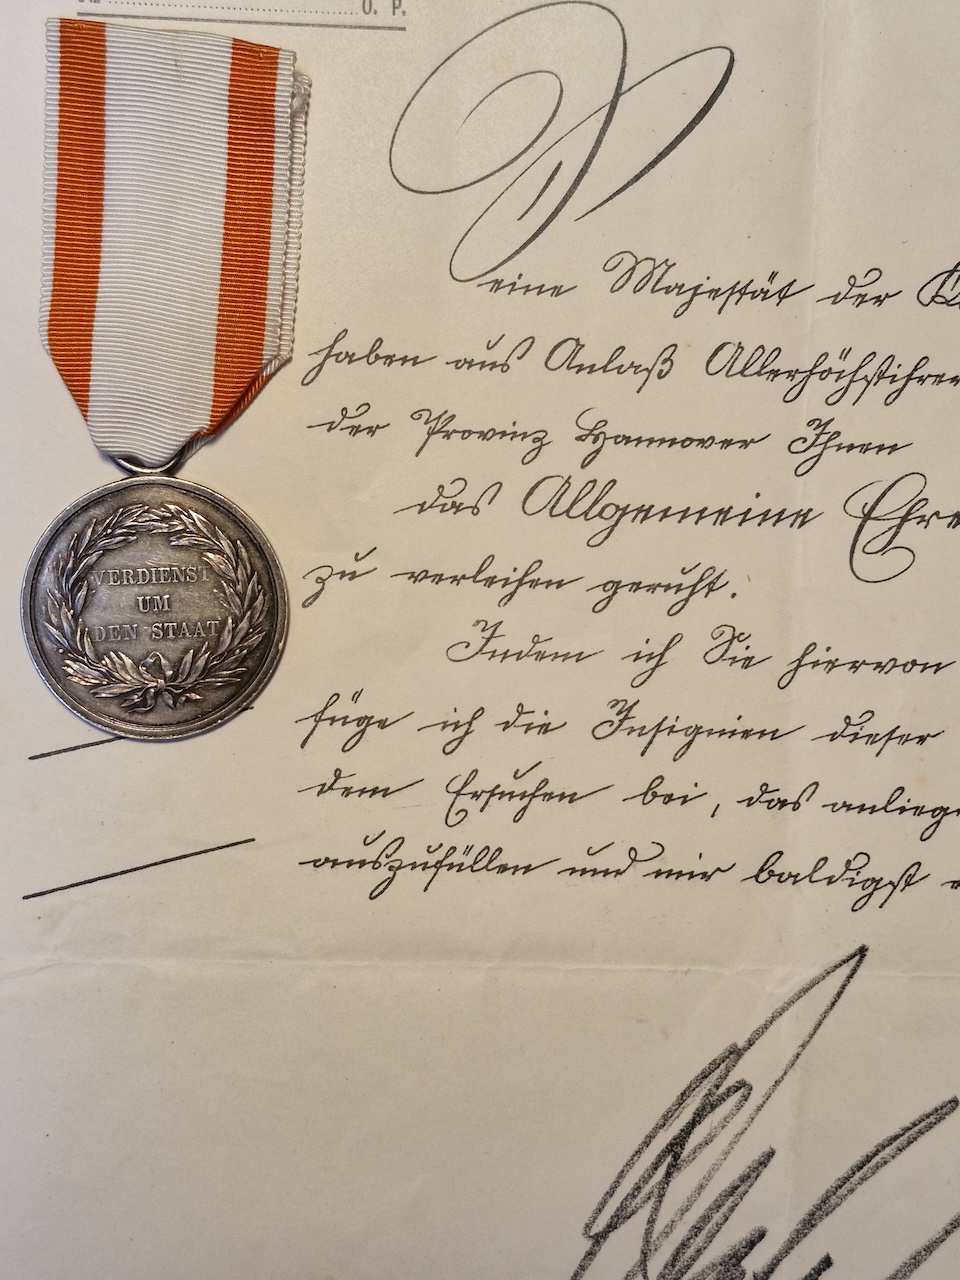 O. P.
Seine Majestät der
haben aus Anlaß Allerhöchstihrer
der Provinz Hannover Ihnen
das Allgemeine Ehre
zu verleihen geruht.
Indem ich Sie hiervon
füge ich die Insignien dieser
dem Ersuchen bei, das anliege
auszufüllen und mir baldigst
VERDIENST
UM
DEN STAAT